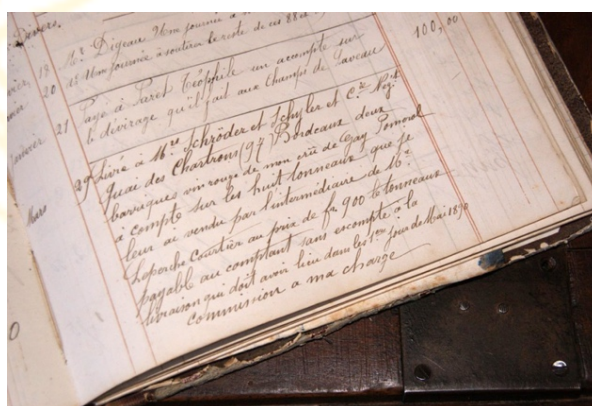 Devers,
13 Mr Digeau 26m journée à
20 13 16m journée à soutirer le reste de ces 88
100,00
21 Payé à Furet Téophile un accompte sur
le dévirage qu'il fait aux Champs de Paveau
Janvier 29 Livré à Mrs Schröder et Schyler et Cie Negts
Quai des Chartrons (97) Bordeaux deux
barriques vin rouge de mon crû de Gay Pomerol
à compte sur les huit tonneaux que je
leur ai vendu par l'intermédiaire de Mr
Laporche Courtier au prix de fs 900 le tonneaux
Mars
payable au comptant sans escompte à la
livraison qui doit avoir lieu dans les 1ers jours de Mai 1890
commission a ma charge
0